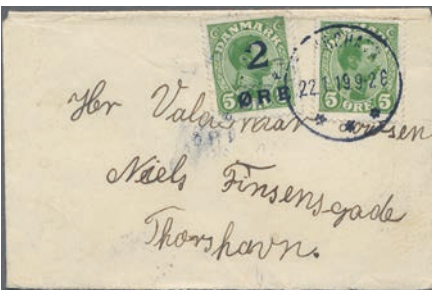 DANMARK
2
5 ØRE
5 ØRE 5
22.1.19.9-2E
Hr Valdemar
Niels Finsensgade
Thorshavn.